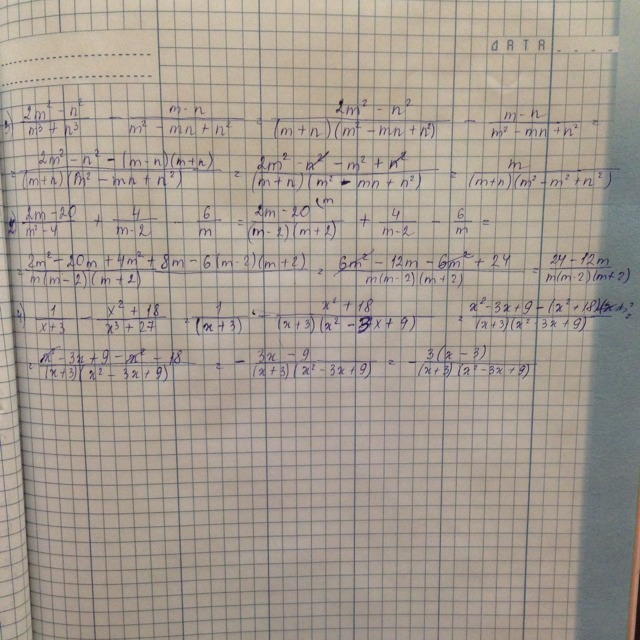 ДАТА
3) (2m² - n²)/(m³ + n³) - (m - n)/(m² - mn + n²) = (2m² - n²)/((m+n)(m² - mn + n²)) - (m - n)/(m² - mn + n²) =
= (2m² - n² - (m-n)(m+n))/((m+n)(m² - mn + n²)) = (2m² - n² - m² + n²)/((m+n)(m² - mn + n²)) = m/((m+n)(m² - m² + n²))
(2m - 20)/(m² - 4) + 4/(m - 2) - 6/m = (2m - 20)/((m-2)(m+2)) + 4/(m-2) - 6/m =
= (2m² - 20m + 4m² + 8m - 6(m-2)(m+2))/(m(m-2)(m+2)) = (6m² - 12m - 6m² + 24)/(m(m-2)(m+2)) = (24 - 12m)/(m(m-2)(m+2))
1/(x+3) - (x² + 18)/(x³ + 27) = 1/(x+3) - (x² + 18)/((x+3)(x² - 3x + 9)) = (x² - 3x + 9 - (x² + 18))/((x+3)(x² - 3x + 9))
= (x² - 3x + 9 - x² - 18)/((x+3)(x² - 3x + 9)) = - (3x - 9)/((x+3)(x² - 3x + 9)) = - (3(x - 3))/((x+3)(x² - 3x + 9))